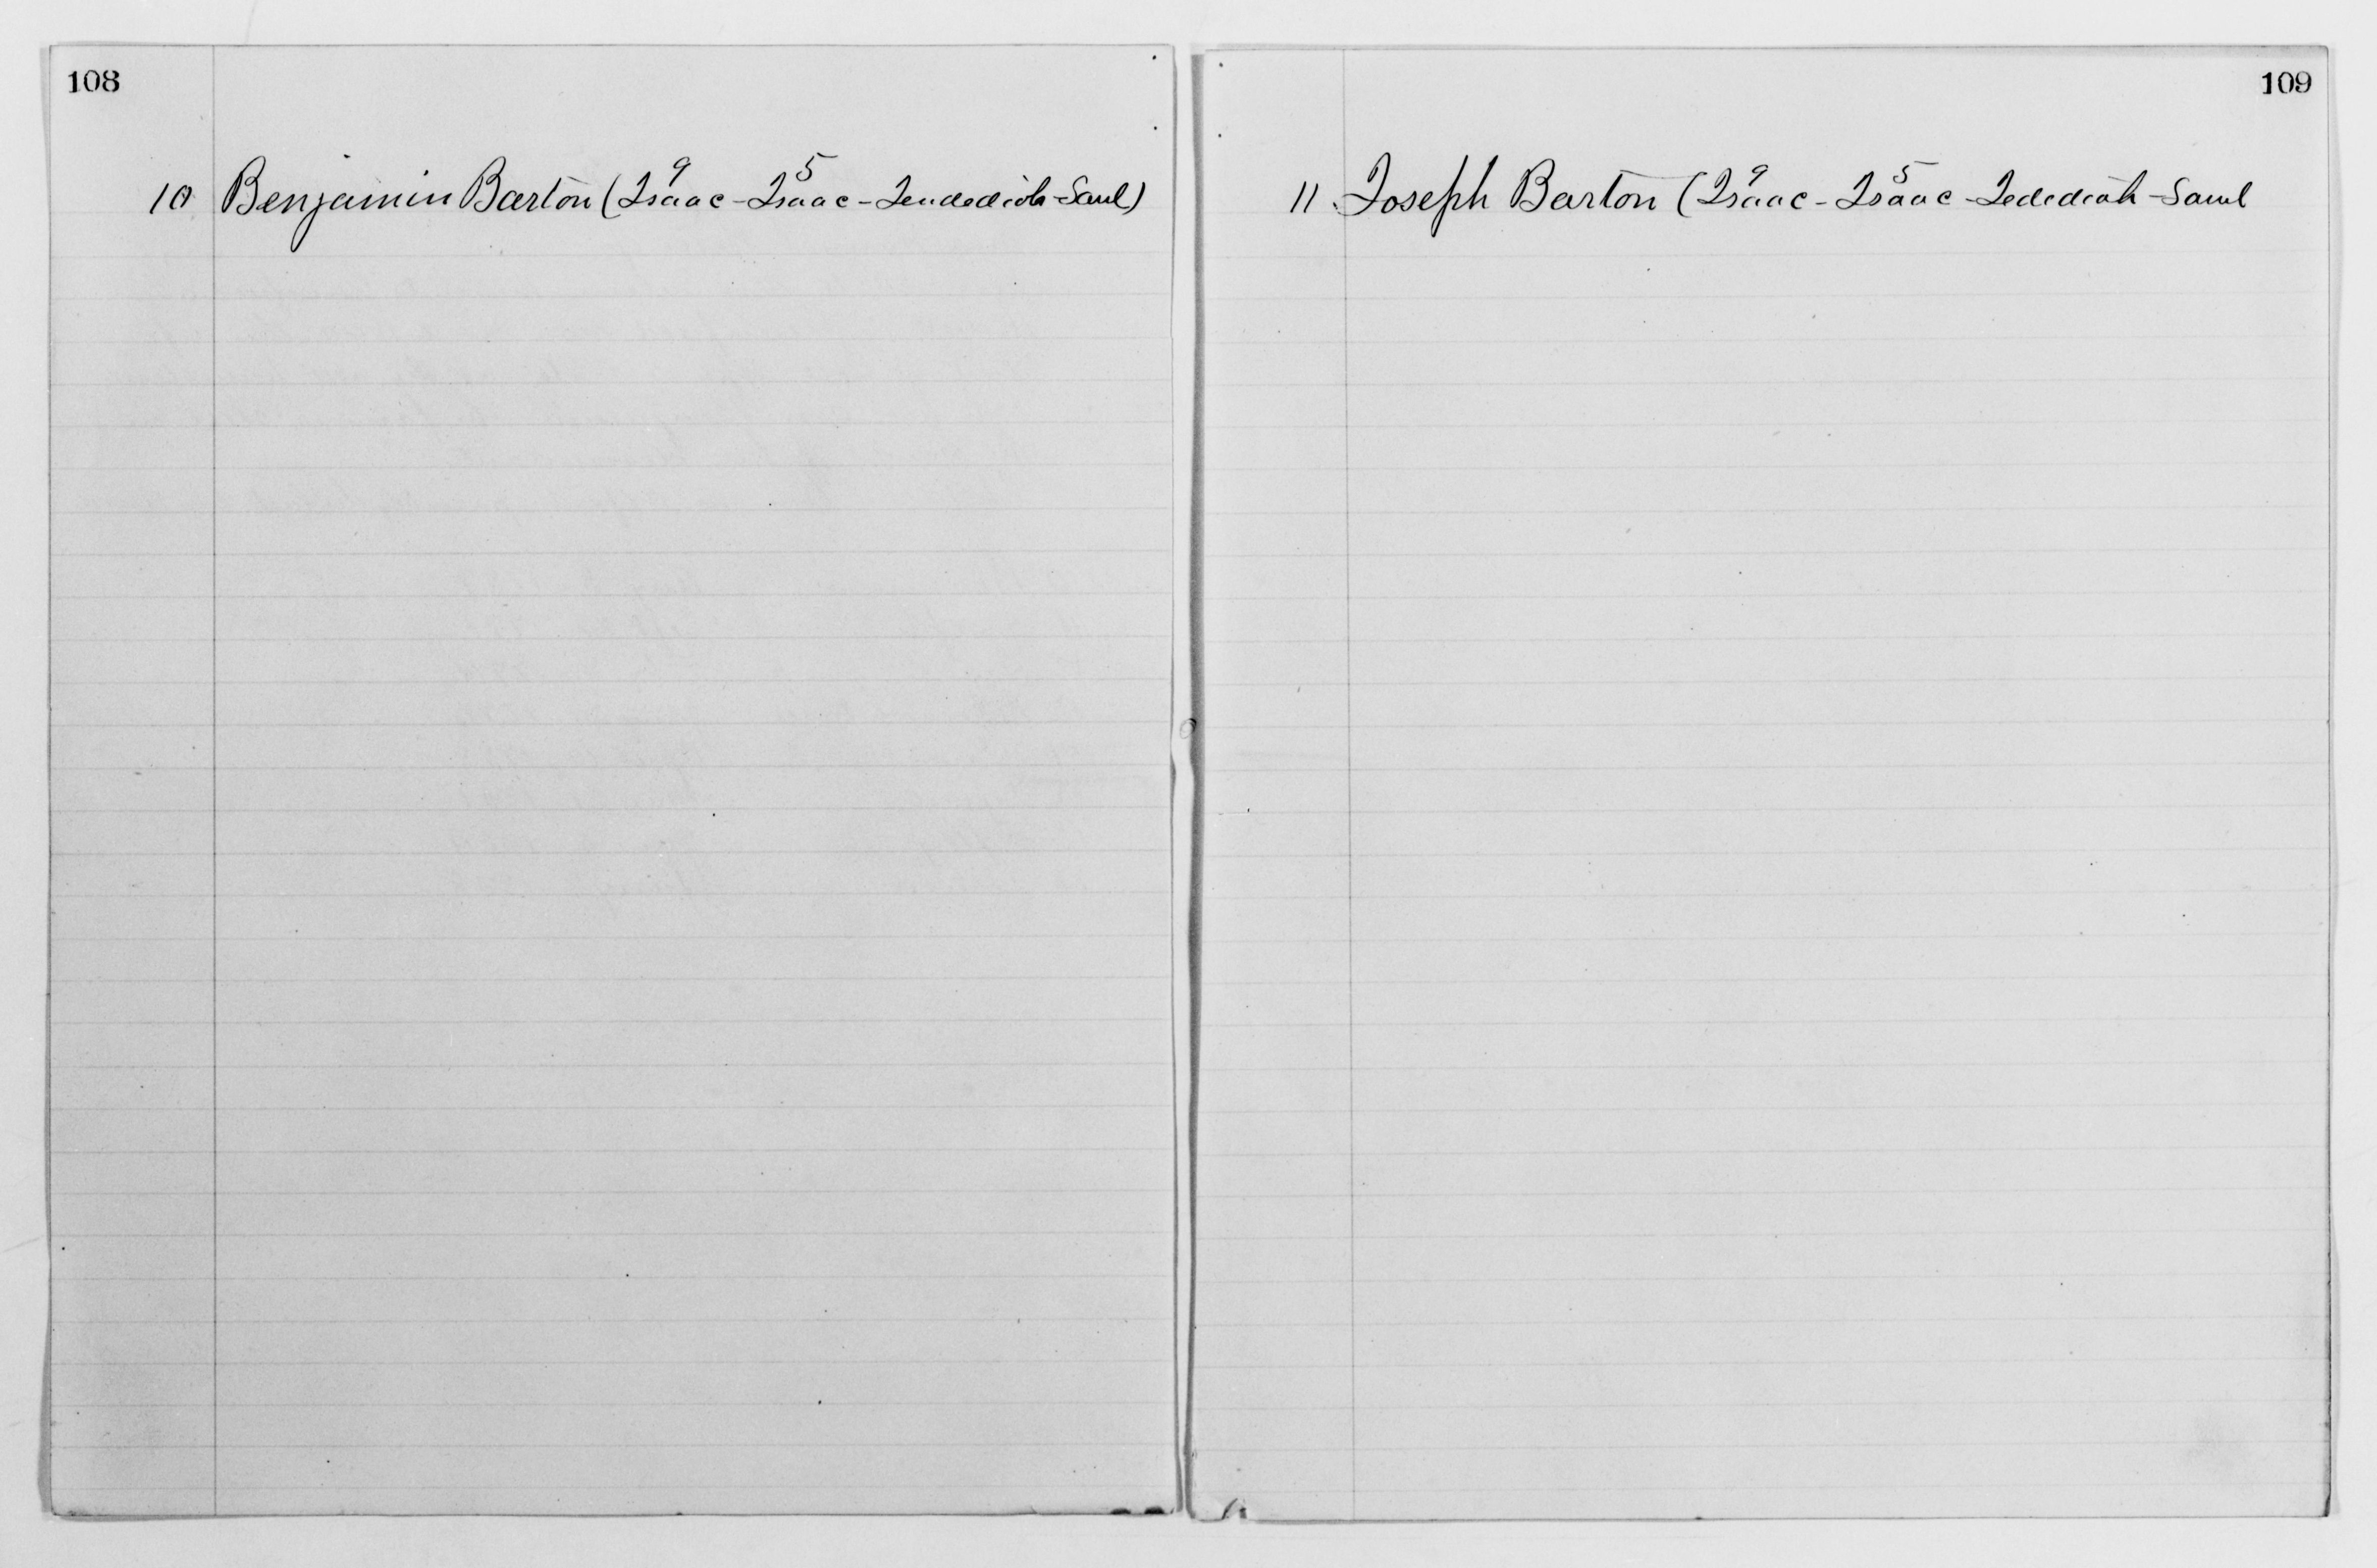 108
10 Benjamin Barton (Isaac⁹ - Isaac⁵ - Jendediah - Saml)
109
11. Joseph Barton (Isaac⁹ - Isaac⁵ - Jedediah - Saml